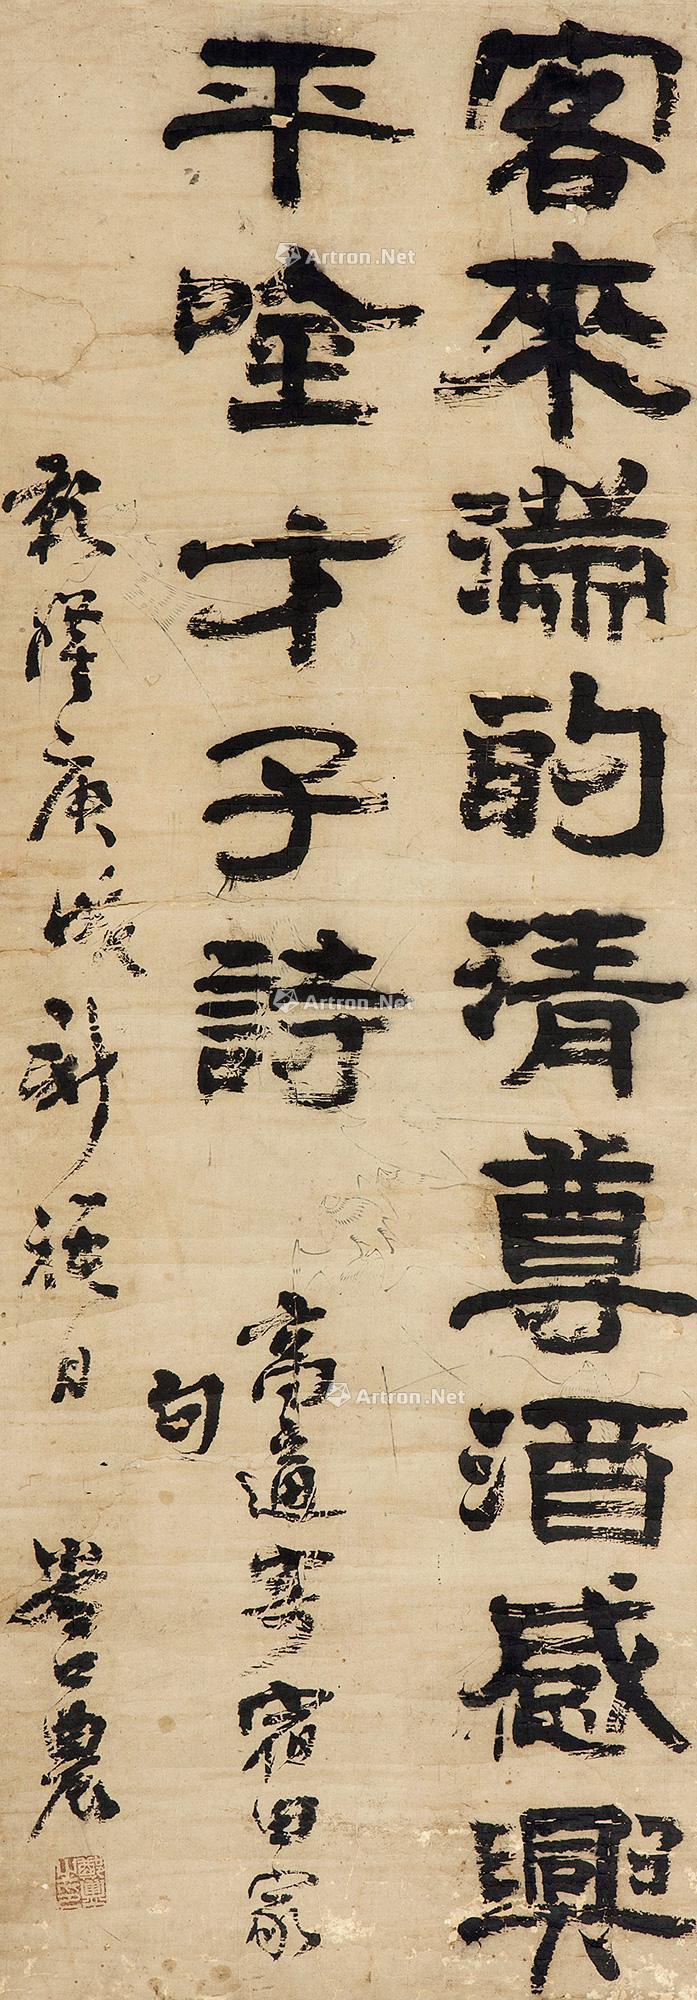 客來滿酌清尊酒感興
平吟才子詩
高適寄宿田家
句
庚 新 日 谷口農
Artron.Net
Artron.Net
Artron.Net